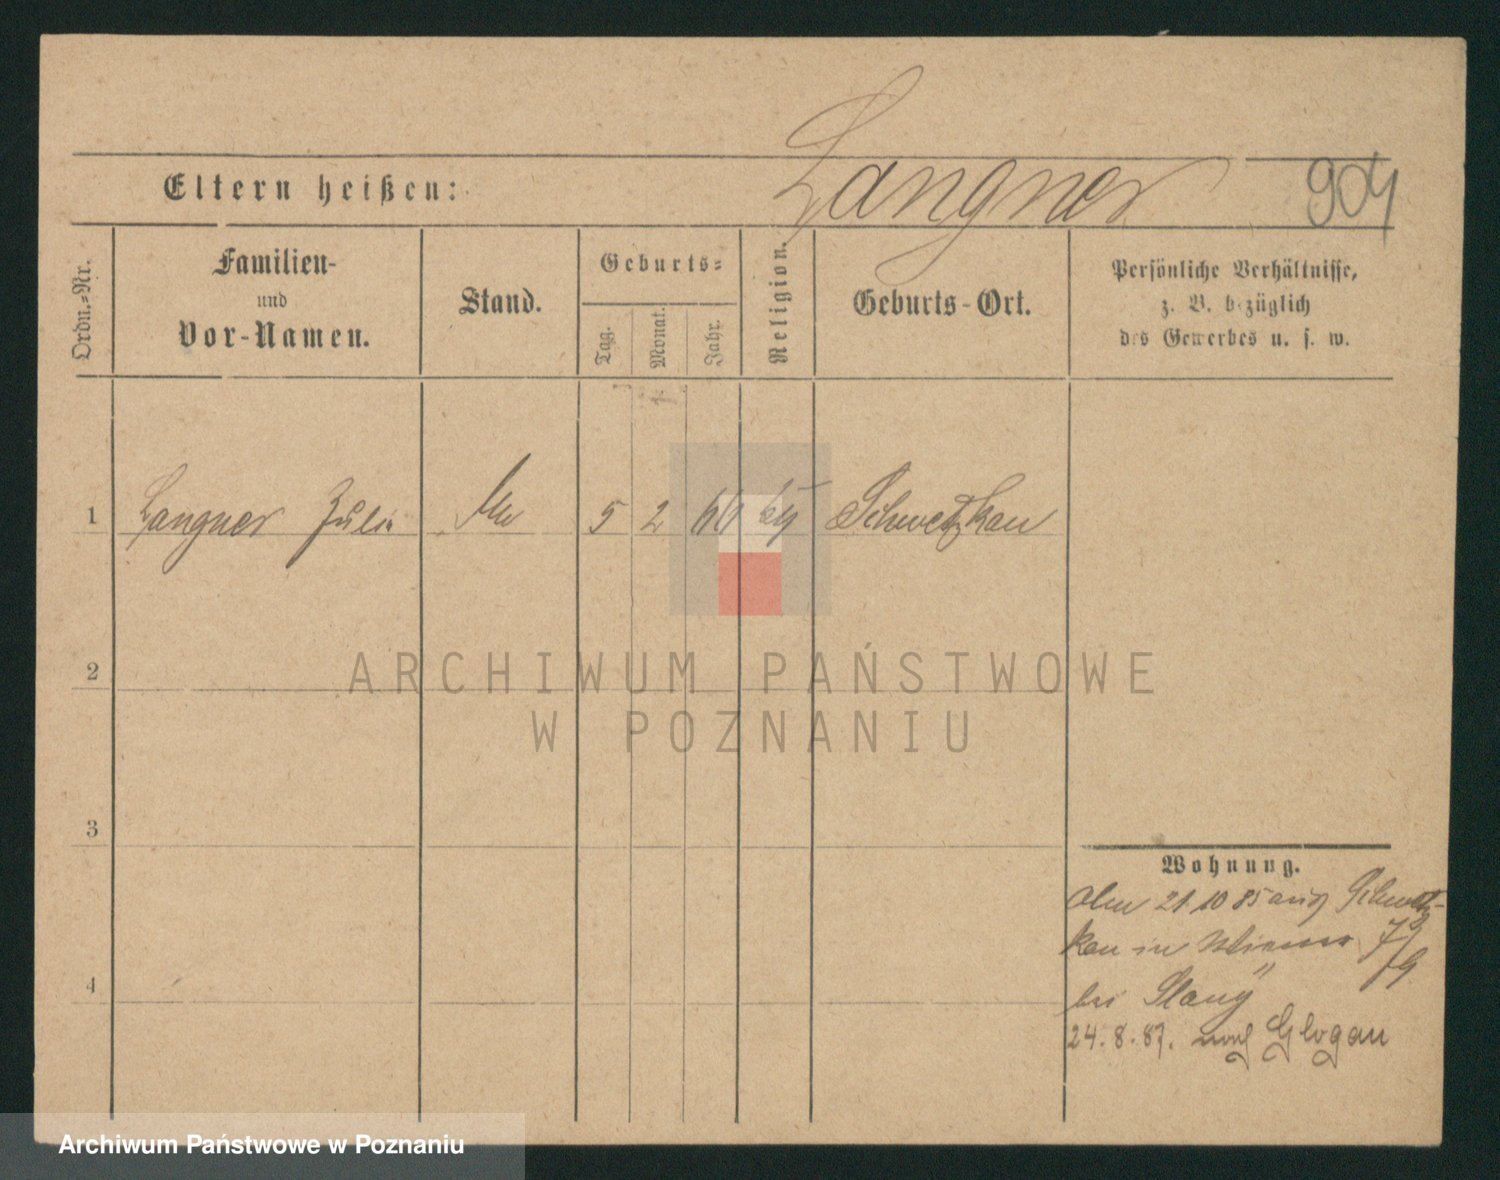 Langner
904
Eltern heißen:
Ordn.=Nr.
Familien-
und
Vor-Namen.
Stand.
Geburts=
Tag.
Monat.
Jahr.
Religion.
Geburts-Ort.
Persönliche Verhältnisse,
z. B. bezüglich
des Gewerbes u. s. w.
1 Langner 5 2 Schwetzkau
2
ARCHIWUM PAŃSTWOWE
W POZNANIU
3
4
Wohnung.
21 10 85 aus Schwetz-
kau in
bei
24. 8. 87. nach Glogau
Archiwum Państwowe w Poznaniu